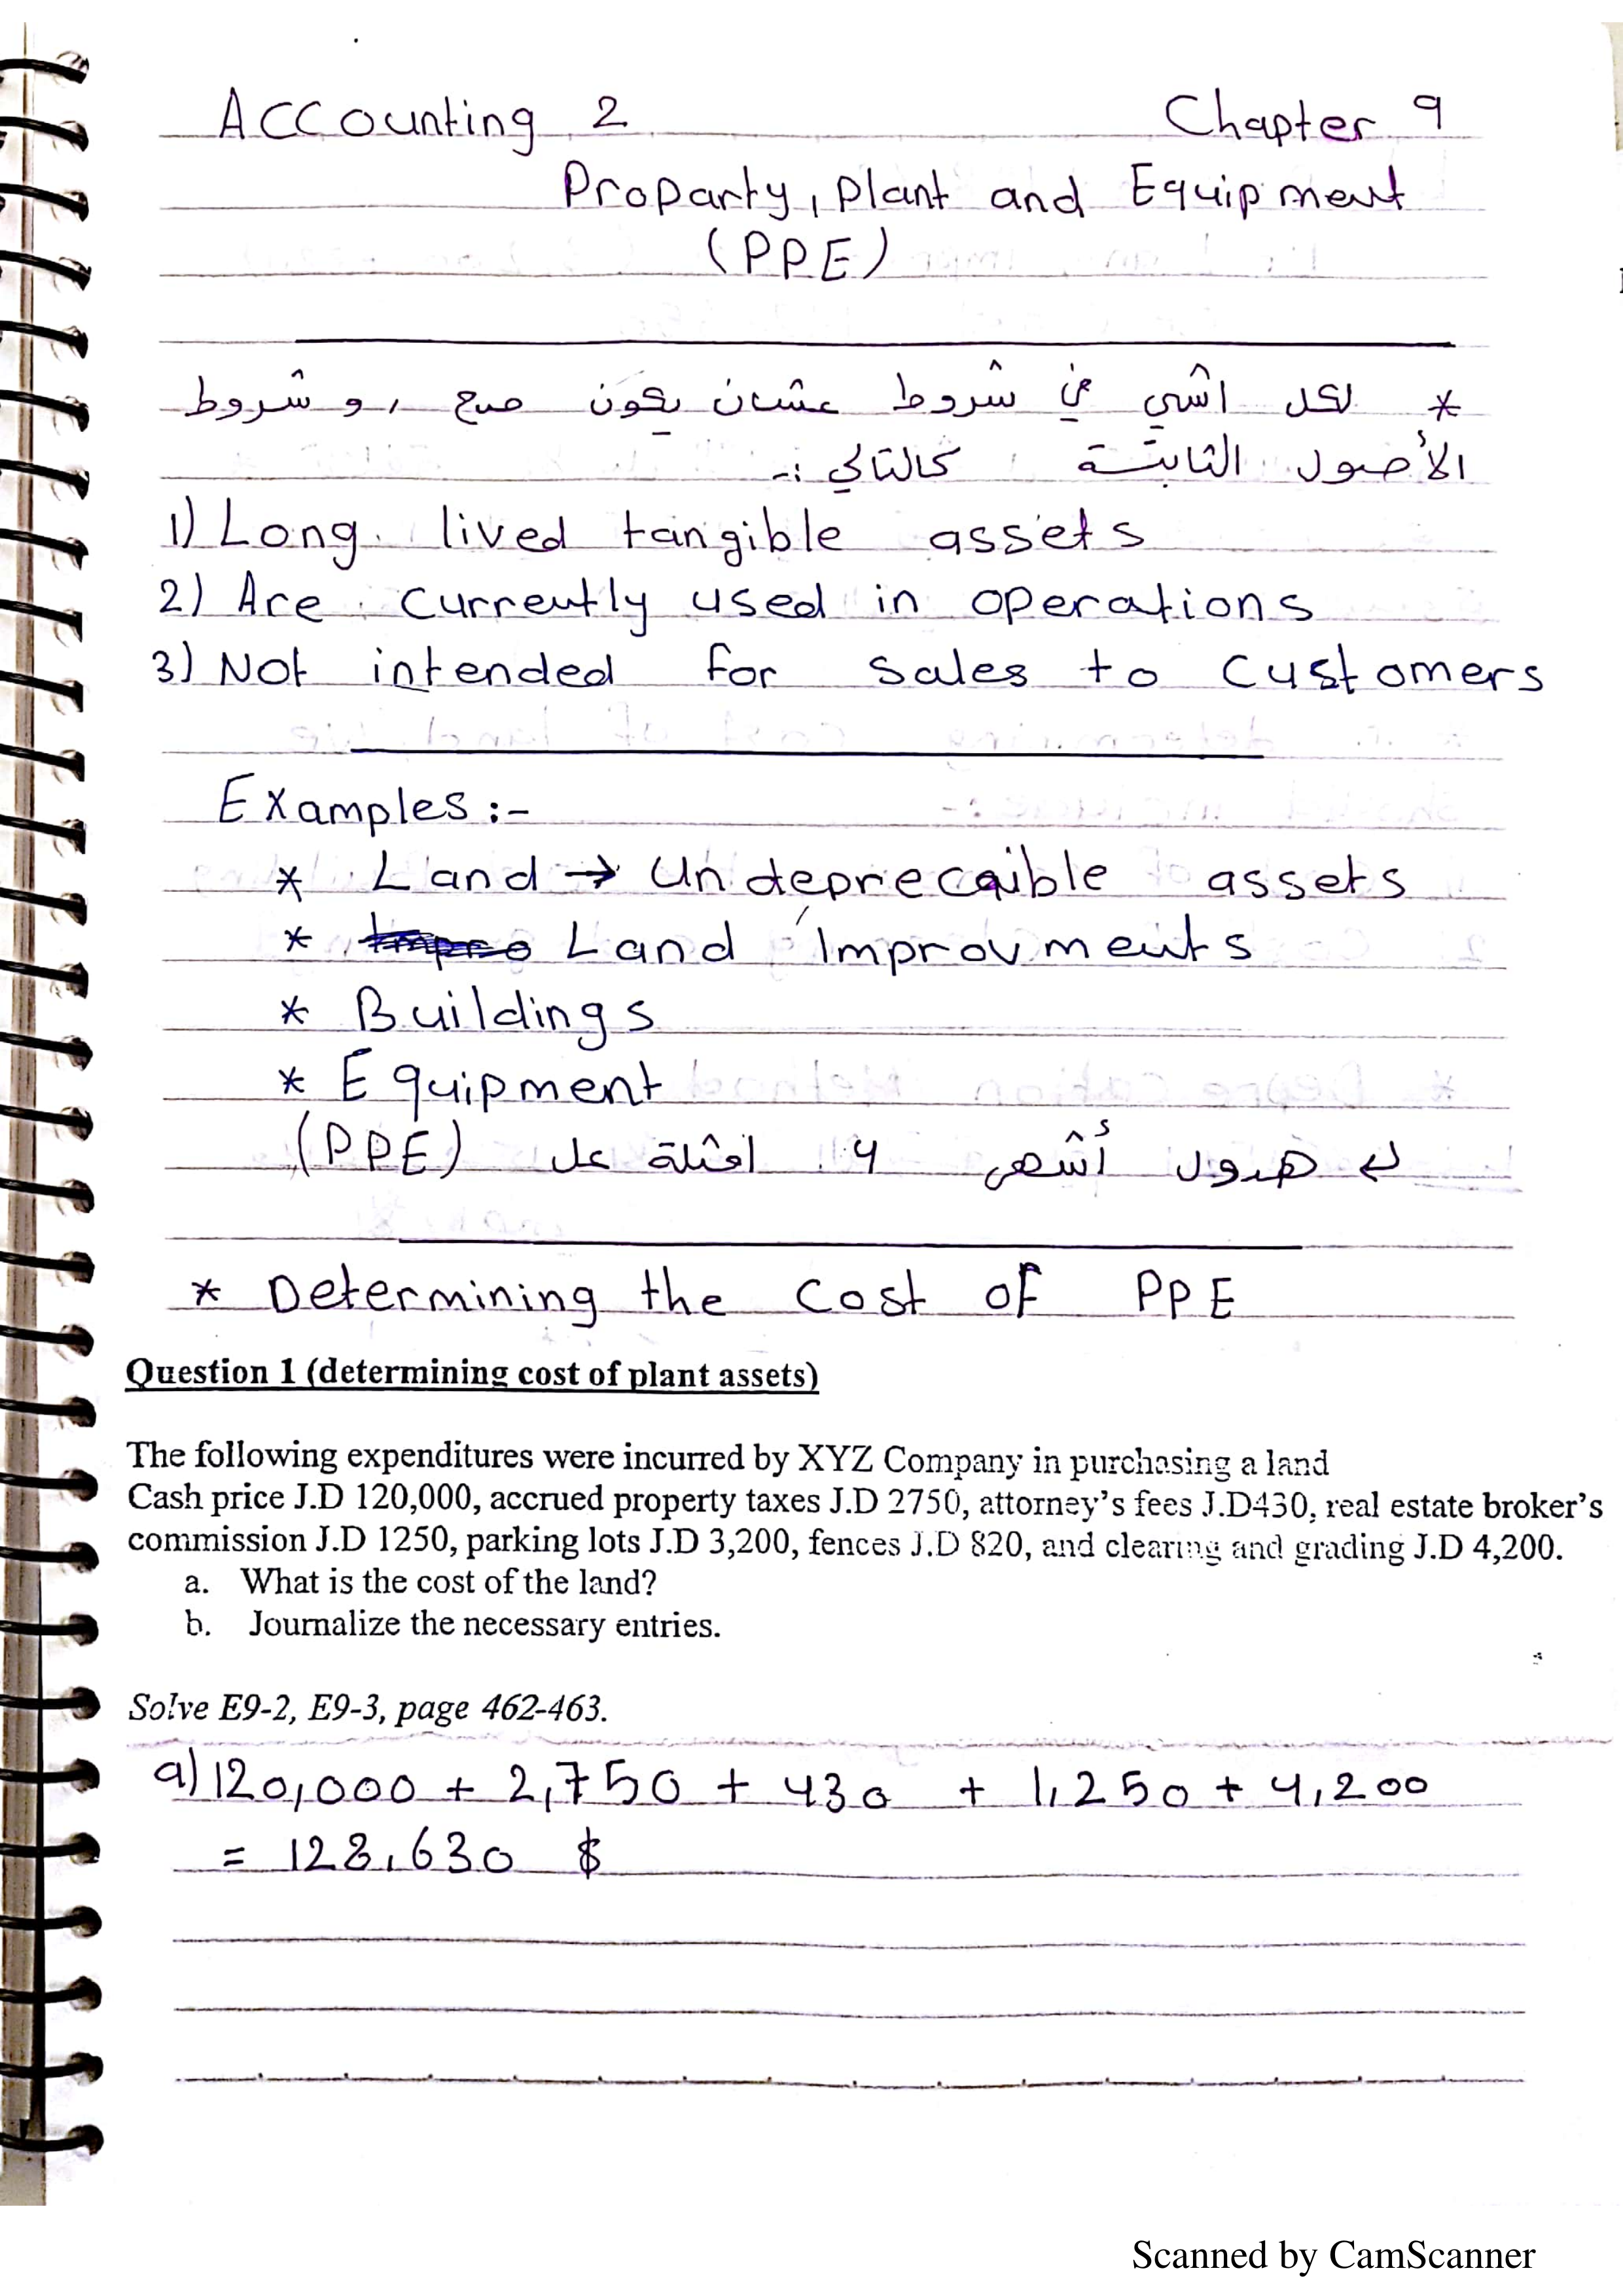 Accounting 2 Chapter 9
Proparty, Plant and Equipment
(PPE)
* لكل اشي في شروط عشان يكون صح , و شروط
الأصول الثابتة كالتالي :-
1) Long lived tangible assets
2) Are currently used in operations
3) Not intended for sales to customers
Examples :-
* Land → Undeprecaible assets
* Land Improvments
* Buildings
* Equipment
هدول أشهر 4 امثلة عل (PPE)
* Determining the cost of PPE
Question 1 (determining cost of plant assets)
The following expenditures were incurred by XYZ Company in purchasing a land
Cash price J.D 120,000, accrued property taxes J.D 2750, attorney's fees J.D430, real estate broker's
commission J.D 1250, parking lots J.D 3,200, fences J.D 820, and clearing and grading J.D 4,200.
a. What is the cost of the land?
b. Journalize the necessary entries.
Solve E9-2, E9-3, page 462-463.
a) 120,000 + 2,750 + 430 + 1,250 + 4,200
= 128,630 $
Scanned by CamScanner